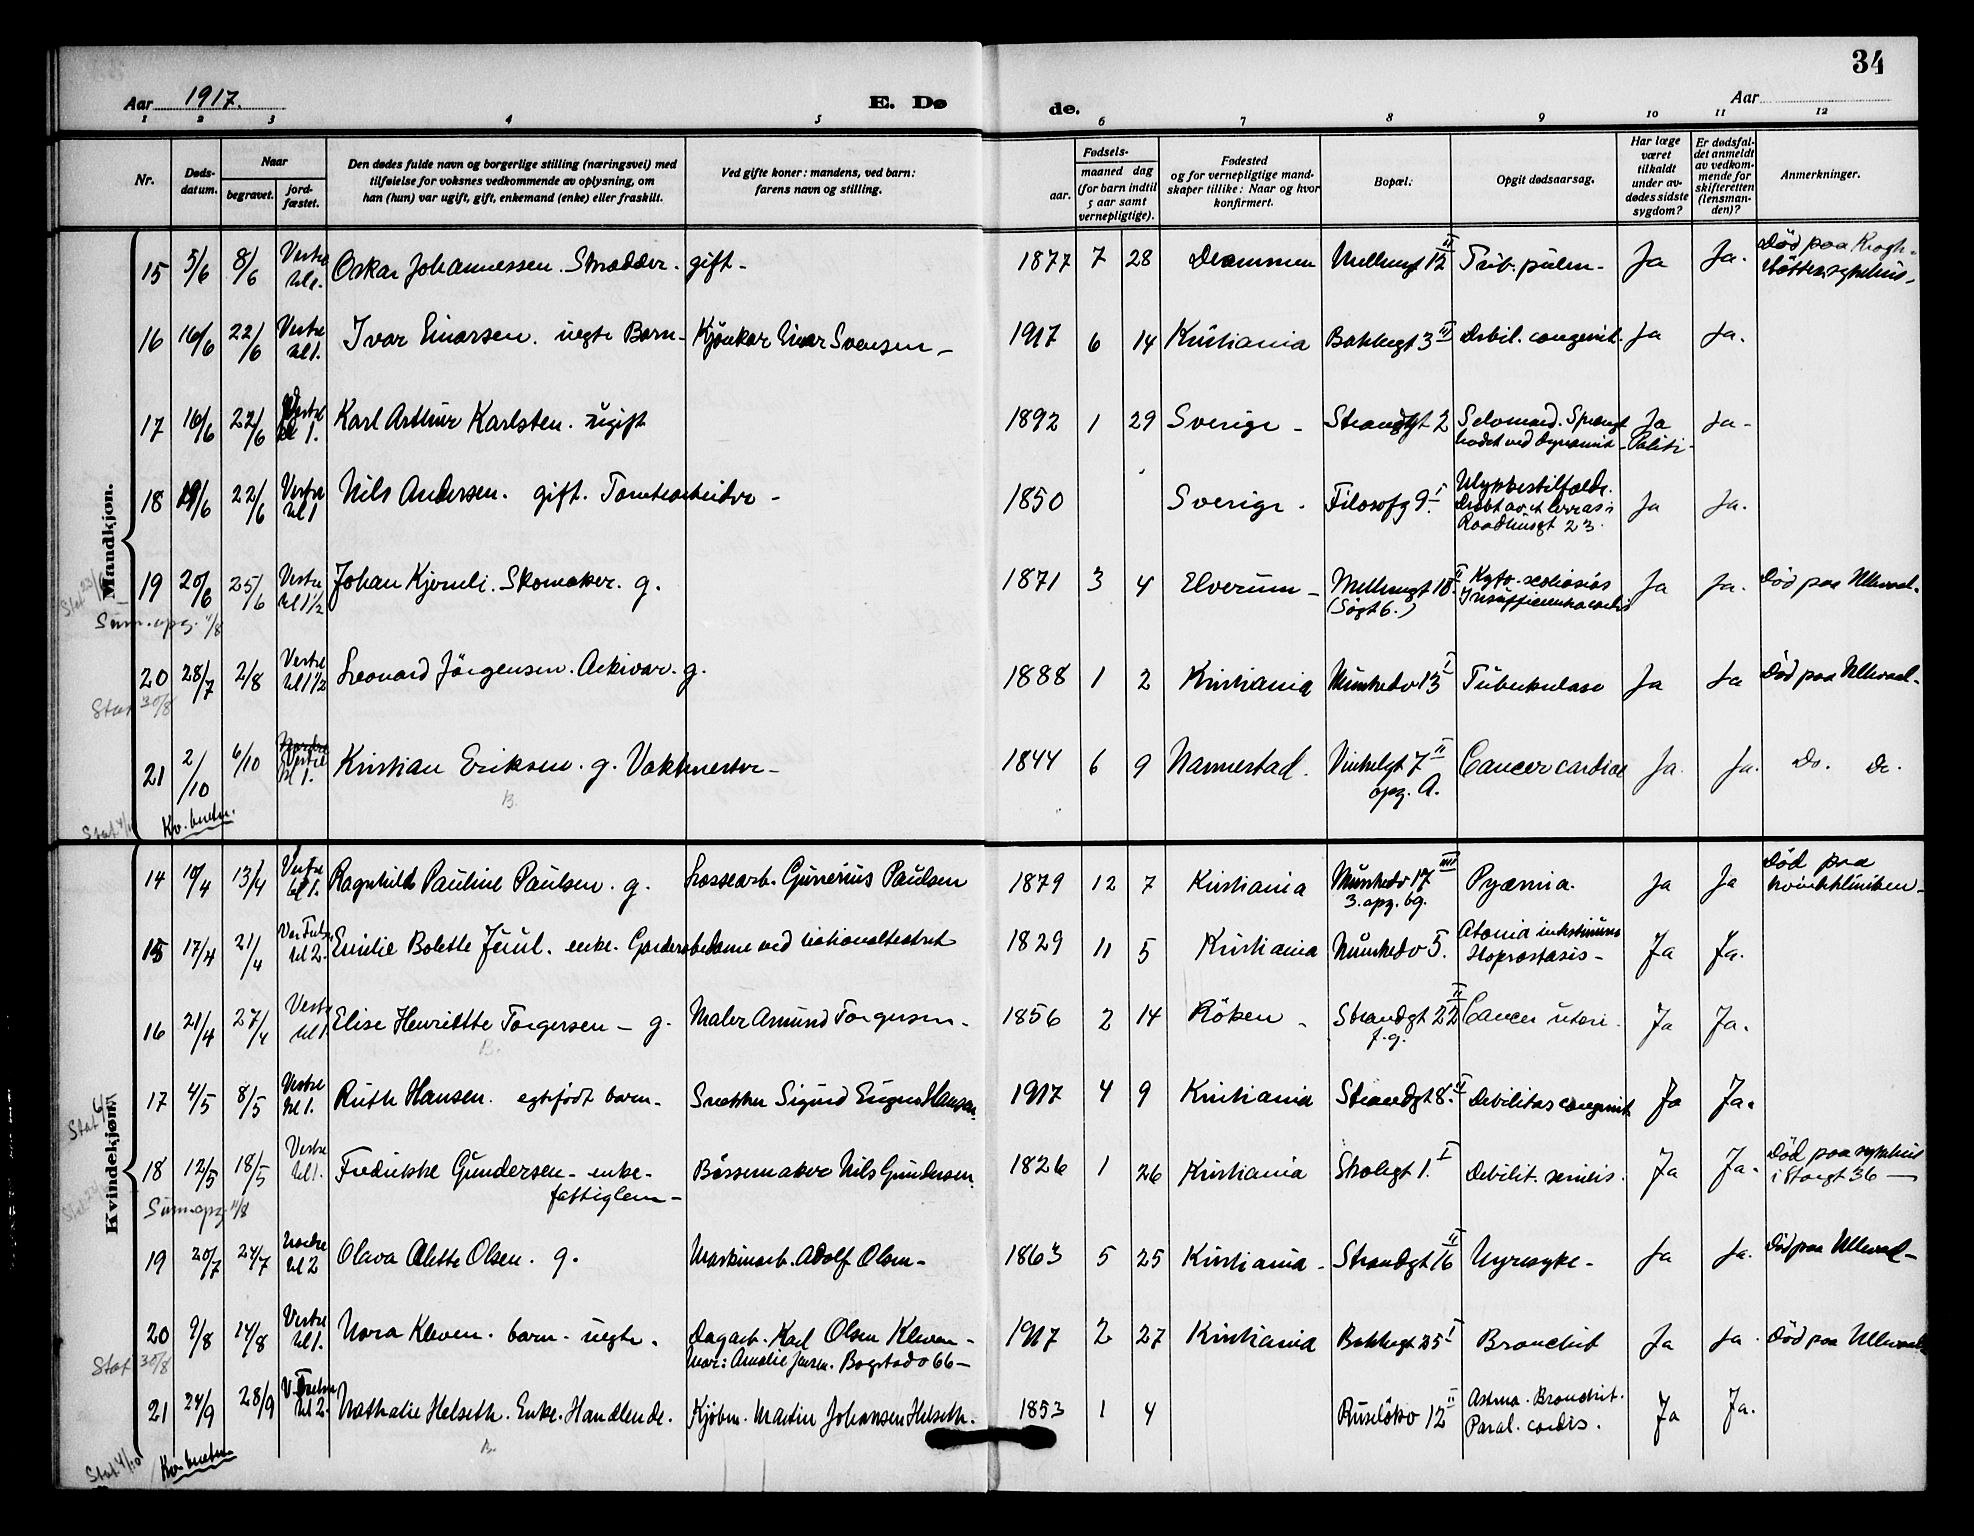 34
Aar 1917.
E. Dø
de.
Aar
1 2 3 4 5 6 7 8 9 10 11 12
Nr.
Døds-
datum.
Naar
begravet.
jord-
fæstet.
Den dødes fulde navn og borgerlige stilling (næringsvei) med
tilføielse for voksnes vedkommende av oplysning, om
han (hun) var ugift, gift, enkemand (enke) eller fraskilt.
Ved gifte koner: mandens, ved barn:
farens navn og stilling.
Fødsels-
aar.
maaned dag
(for barn indtil
5 aar samt
vernepligtige).
Fødested
og for vernepligtige mand-
skaper tillike: Naar og hvor
konfirmert.
Bopæl:
Opgit dødsaarsag.
Har læge
været
tilkaldt
under av-
dødes sidste
sygdom?
Er dødsfal-
det anmeldt
av vedkom-
mende for
skifteretten
(lensman-
den)?
Anmerkninger.
Mandkjøn.
15 5/6 8/6 Vestre kl 1. Oskar Johannessen. Skrædder. gift- 1877 7 28 Drammen Mellemgt 12 II Tub. pulm- Ja Ja. Død paa Krogh-
støttens sykehus-
16 16/6 22/6 Vestre kl 1. Ivar Einarsen. uegte Barn- Kjørekar Einar Svensen- 1917 6 14 Kristiania Bakkegt 3 II Debil. congenit. Ja Ja.
17 16/6 22/6 Vestre kl 1. Karl Arthur Karlsten. ugift 1892 1 29 Sverige- Strandgt 2 Selvmord. Sprængt
hodet ved dynamit- Ja
Politi- Ja-
18 19/6 22/6 Vestre kl 1 Nils Andersen. gift. Tomtearbeider- 1850 Sverige. Filosofg 9 I. Ulykkestilfælde.
Dræbt av et lerras i
Raadhusgt 23. Ja Ja.
19 20/6 25/6 Vestre kl 1½ Johan Kjernli. Skomaker. g. 1871 3 4 Elverum- Mellemgt 18 II
(Søgt 6.) Kyfo-scoliosis
Insufficientia cordis Ja Ja. Død paa Ullevaal.
Stat 23/6
Sum. opg. 11/8
20 28/7 2/8 Vestre kl 1½ Leonard Jörgensen. Arkivar. g. 1888 1 2 Kristiania Munkedv 13 I Tuberkulose Ja Ja Død paa Ullevaal-
Stat 30/8
21 2/10 6/10 Vestre kl 1. Kristian Eriksen. g. Vaktmester- 1844 6 9 Nannestad. Vinkelgt 7 II
opg. A. Cancer cardiae Ja. Ja. Do. Do.
B.
Stat 4/10
Kvindekjøn.
14 10/4 13/4 Vestre kl 1. Ragnhild Pauline Paulsen. g. Lossearb. Gunerius Paulsen 1879 12 7 Kristiania Munkedv 17 IIII
3. opg. bg. Pyæmia. Ja Ja Død paa
kvindeklinikken-
15 17/4 21/4 kl 2. Emilie Bolette Juul. enke. Garderobedame ved Nationalteatret 1829 11 5 Kristiania Munkedv 5. Atonia intestinum
Koprostasis- Ja Ja.
16 21/4 27/4 Vestre kl 1 Elise Henriette Torgersen- g. Maler Amund Torgersen- 1856 2 14 Röken- Strandgt 22 II
f.g. Cancer uteri. Ja Ja.
B.
17 4/5 8/5 Vestre kl 1. Ruth Hansen. egtefödt barn- Snekker Sigurd Eugen Hansen. 1917 4 9 Kristiania Strandgt 8. II Debilitas congenit Ja Ja.
Stat 6/
18 12/5 18/5 Vestre kl 1. Fredrikke Gundersen- enke-
fattiglem- Bössemaker Nils Gundersen. 1826 1 26 Kristiania Skolegt 1. I Debilit. senilis. Ja Ja. Död paa sykehus
i Storgt 36-
Sum. opg. 11/8
19 20/7 24/7 Nordre kl 2 Olava Alette Olsen. g. Maskinarb. Adolf Olsen- 1863 5 25 Kristiania- Strandgt 16 II Nyresyke- Ja Ja. Död paa Ullevaal-
20 9/8 14/8 Vestre kl 1. Nora Kleven. barn- uegte. Dagarb. Karl Olsen Kleven-
Mor: Amalie Jensen. Bogstadv 66- 1917 2 27 Kristiania Bakkegt 25 I Bronchit Ja Ja. Död paa Ullevaal
Stat 30/8
21 24/9 28/9 kl 2. Nathalie Helseth. Enke. Handlende. Kjöbm. Martin Johansen Helseth. 1853 1 4 Ruselökv 12 II Astma. Bronchit.
Paral. cordis. Ja Ja.
B.
Stat 4/10